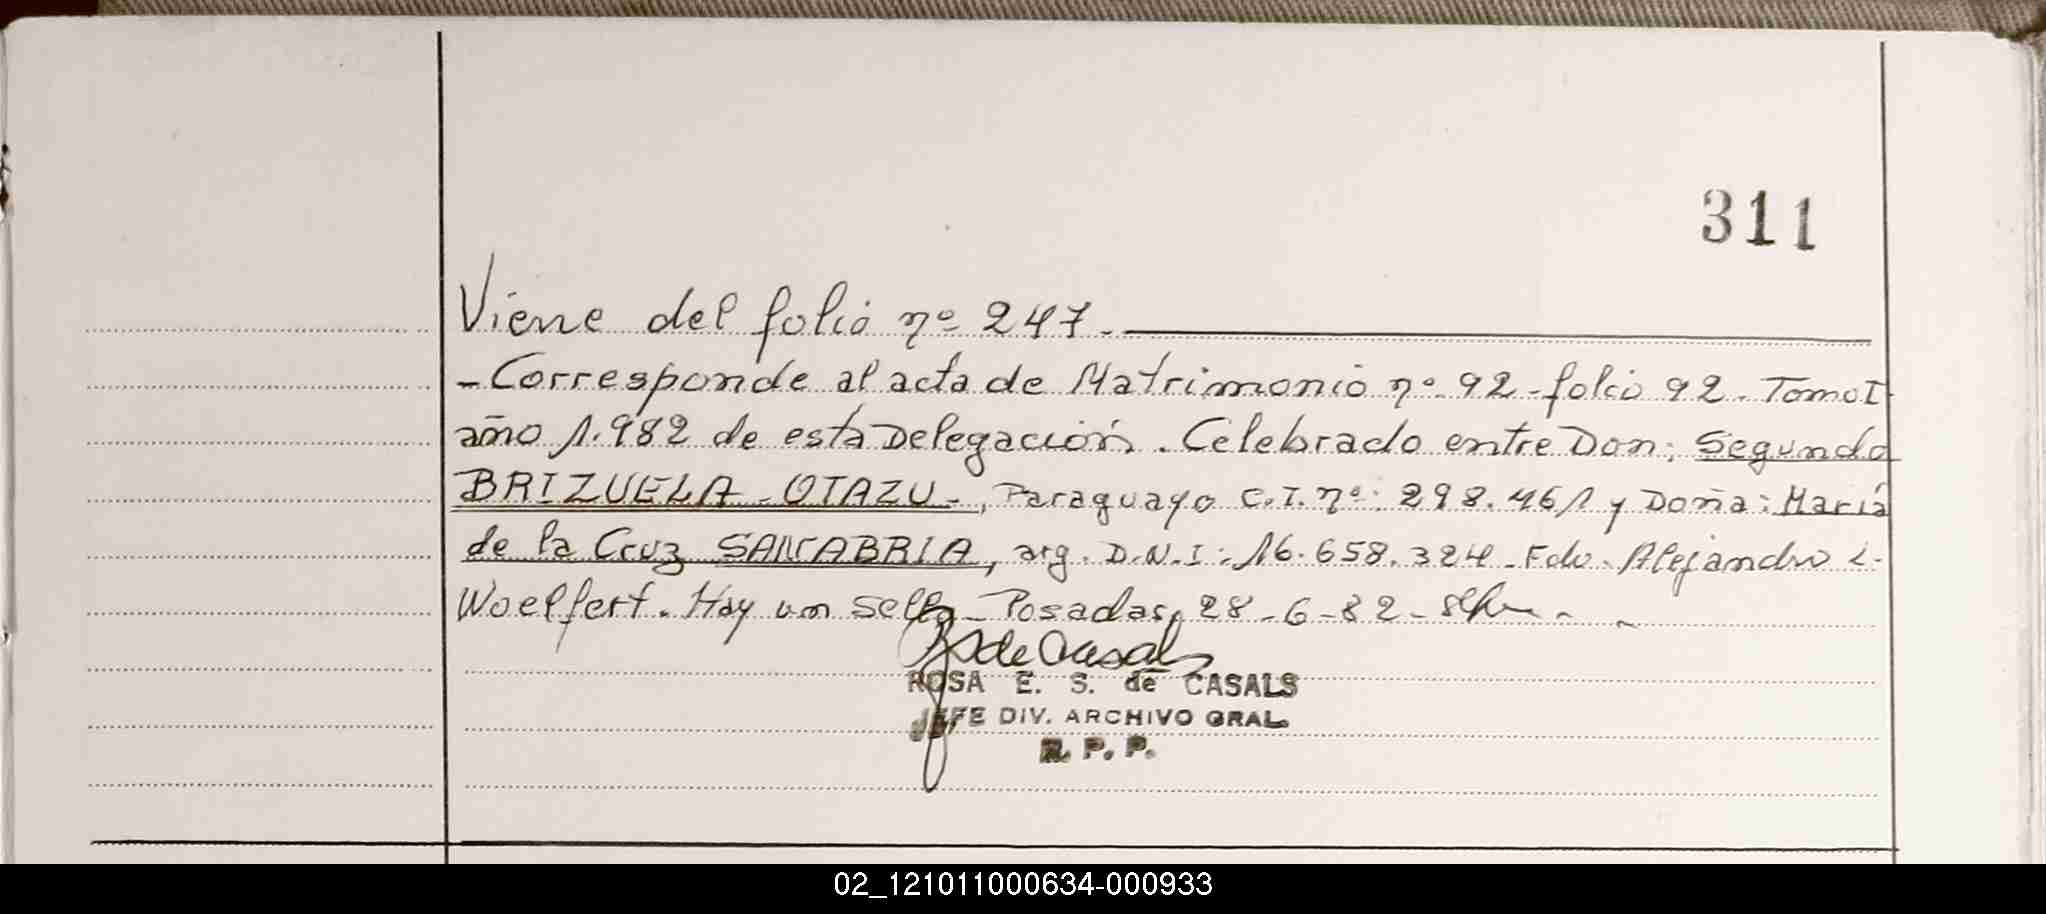 311
Viene del folio nº 247.
- Corresponde al acta de Matrimonio nº 92 - folio 92. Tomo I
año 1.982 de esta Delegación. Celebrado entre Don: Segundo
BRIZUELA - OTAZU -, Paraguayo C.I. nº: 298.461 y Doña: María
de la Cruz SANABRIA, arg. D.N.I: 16.658.324 - Fdo. Alejandro L.
Woelfert. Hay un sello - Posadas, 28-6-82 -
RS de Casals
ROSA E. S. de CASALS
JEFE DIV. ARCHIVO GRAL.
R. P. P.
02_121011000634-000933